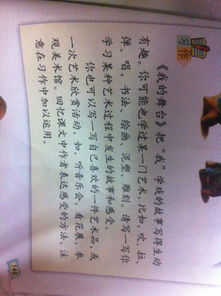 《我的舞台》把“我”学戏的故事写得生动
有趣，你可能也学过某一门艺术，比如，吹、拉、
弹、唱，书法、绘画，泥塑、雕刻，请写一写你
学习某种艺术过程中发生的故事和感受。
你也可以写一写自己喜欢的一件艺术品，或
一次艺术欣赏活动，如，听音乐会、看花展、参
观美术馆。回忆课文中作者表达感受的方法，注
意在习作中加以运用。